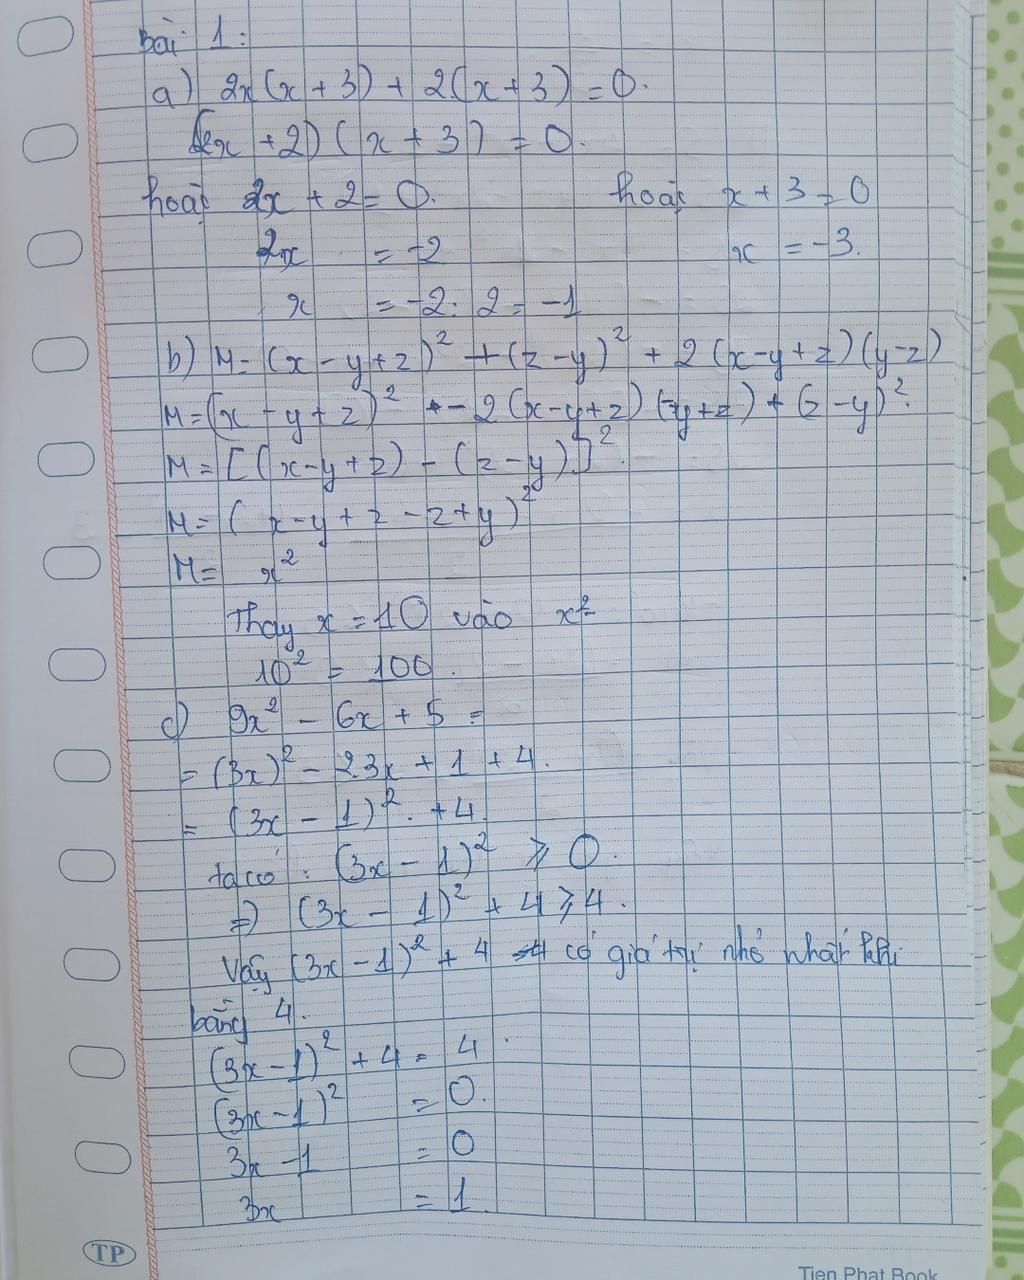 bài 1:
a) 2x(x + 3) + 2(x + 3) = 0.
(2x + 2)(x + 3) = 0.
hoặc 2x + 2 = 0. hoặc x + 3 = 0
2x = -2 x = -3.
x = -2 : 2 = -1
b) M = (x - y + z)² + (z - y)² + 2(x - y + z)(y - z)
M = (x - y + z)² - 2(x - y + z)(-y + z) + (z - y)².
M = [(x - y + z) - (z - y)]².
M = (x - y + z - z + y)²
M = x²
Thay x = 10 vào x²
10² = 100.
c) 9x² - 6x + 5 =
= (3x)² - 2.3x + 1 + 4.
= (3x - 1)² . + 4
ta có : (3x - 1)² ⩾ 0.
=> (3x - 1)² + 4 ⩾ 4.
Vậy (3x - 1)² + 4 có giá trị nhỏ nhất khi
bằng 4.
(3x - 1)² + 4 = 4
(3x - 1)² = 0.
3x - 1 = 0
3x = 1
TP
Tien Phat Book